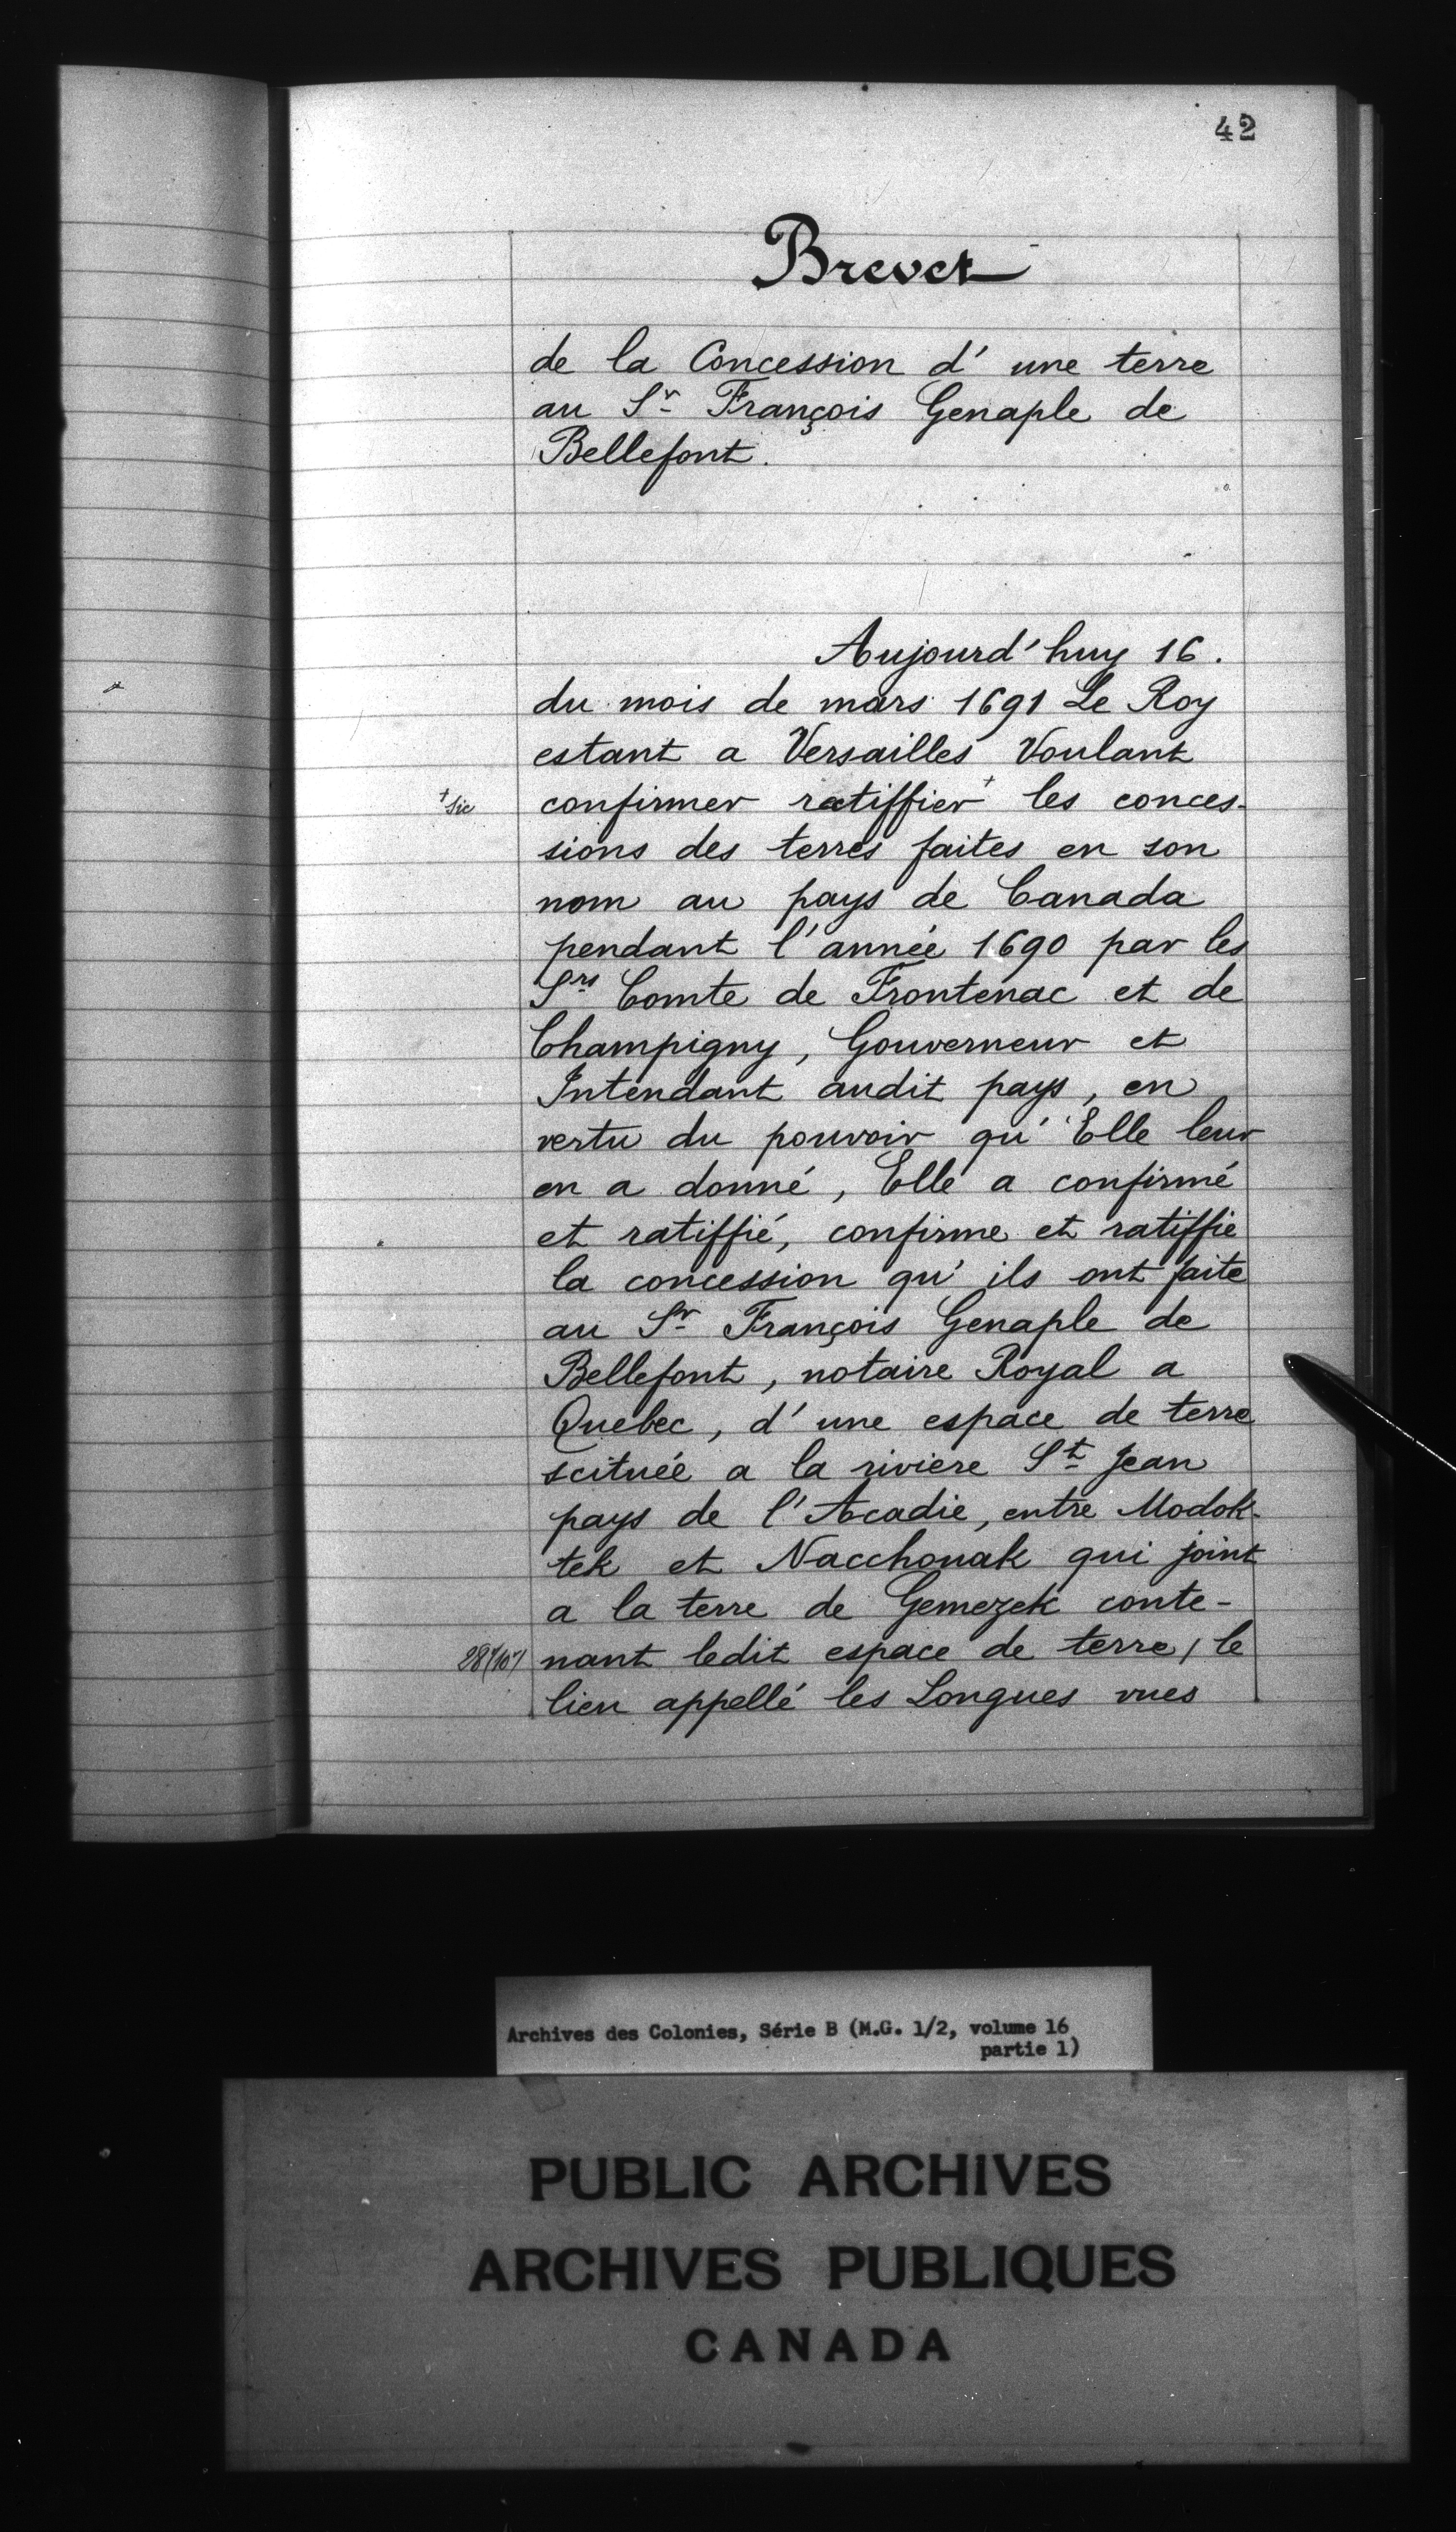 42
Brevet
de la Concession d' une terre
au Sr François Genaple de
Bellefont.
Aujourd'huy 16.
du mois de mars 1691 Le Roy
estant a Versailles Voulant
+ sic
confirmer ratiffier + les conces-
sions des terres faites en son
nom au pays de Canada
pendant l'année 1690 par les
Srs Comte de Frontenac et de
Champigny, Gouverneur et
Intendant audit pays, en
vertu du pouvoir qu' Elle leur
en a donné, Elle a confirmé
et ratiffié, confirme et ratiffie
la concession qu' ils ont faite
au Sr François Genaple de
Bellefont, notaire Royal a
Quebec, d' une espace de terre
scituée a la riviere St Jean
pays de l'Acadie, entre Modok-
tek et Nacchouak qui joint
a la terre de Gemezek conte-
nant ledit espace de terre / le
lieu appellé les Longues vues
Archives des Colonies, Série B (M.G. 1/2, volume 16
partie 1)
PUBLIC ARCHIVES
ARCHIVES PUBLIQUES
CANADA